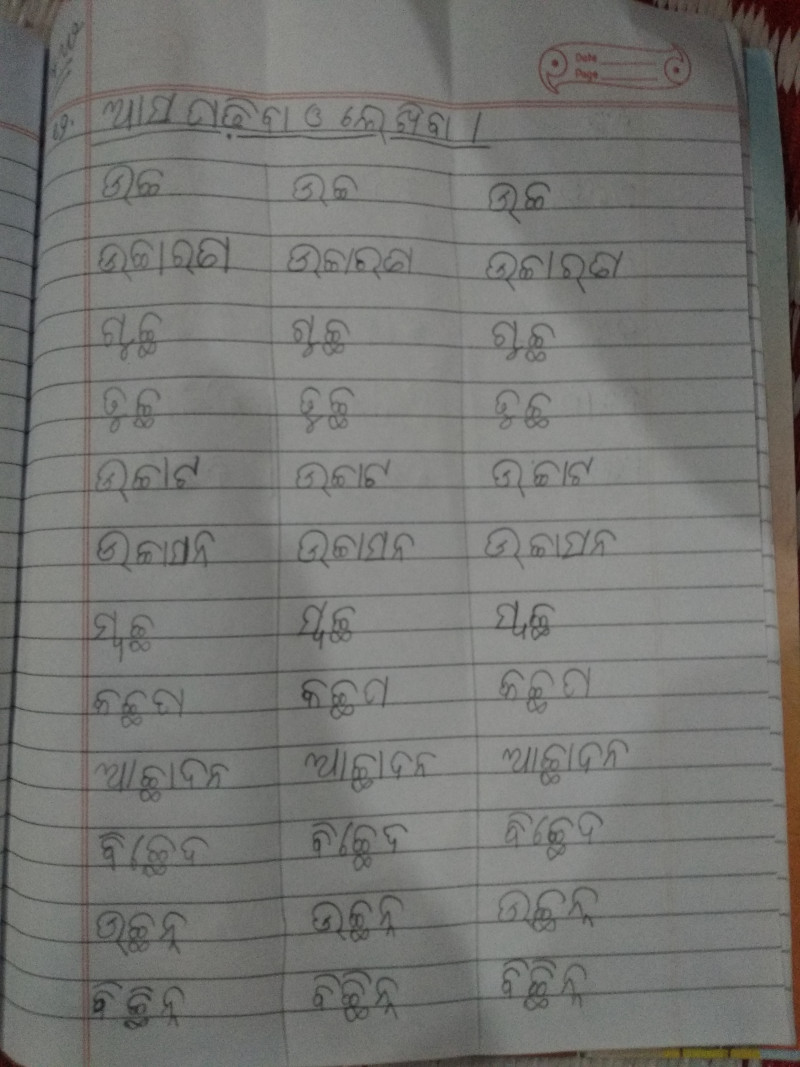 Date
Page
୧୨. ଆସ ପଢ଼ିବା ଓ ଲେଖିବା ।
ଉଚ୍ଚ ଉଚ୍ଚ ଉଚ୍ଚ
ଉଚ୍ଚାରଣ ଉଚ୍ଚାରଣ ଉଚ୍ଚାରଣ
ଗୁଚ୍ଛ ଗୁଚ୍ଛ ଗୁଚ୍ଛ
ତୁଚ୍ଛ ତୁଚ୍ଛ ତୁଚ୍ଛ
ଉଚ୍ଚାଟ ଉଚ୍ଚାଟ ଉଚ୍ଚାଟ
ଉଚ୍ଚାସନ ଉଚ୍ଚାସନ ଉଚ୍ଚାସନ
ସ୍ୱଚ୍ଛ ସ୍ୱଚ୍ଛ ସ୍ୱଚ୍ଛ
କଚ୍ଛପ କଚ୍ଛପ କଚ୍ଛପ
ଆଚ୍ଛାଦନ ଆଚ୍ଛାଦନ ଆଚ୍ଛାଦନ
ବିଚ୍ଛେଦ ବିଚ୍ଛେଦ ବିଚ୍ଛେଦ
ଉଚ୍ଛନ୍ନ ଉଚ୍ଛନ୍ନ ଉଚ୍ଛନ୍ନ
ବିଚ୍ଛିନ୍ନ ବିଚ୍ଛିନ୍ନ ବିଚ୍ଛିନ୍ନ